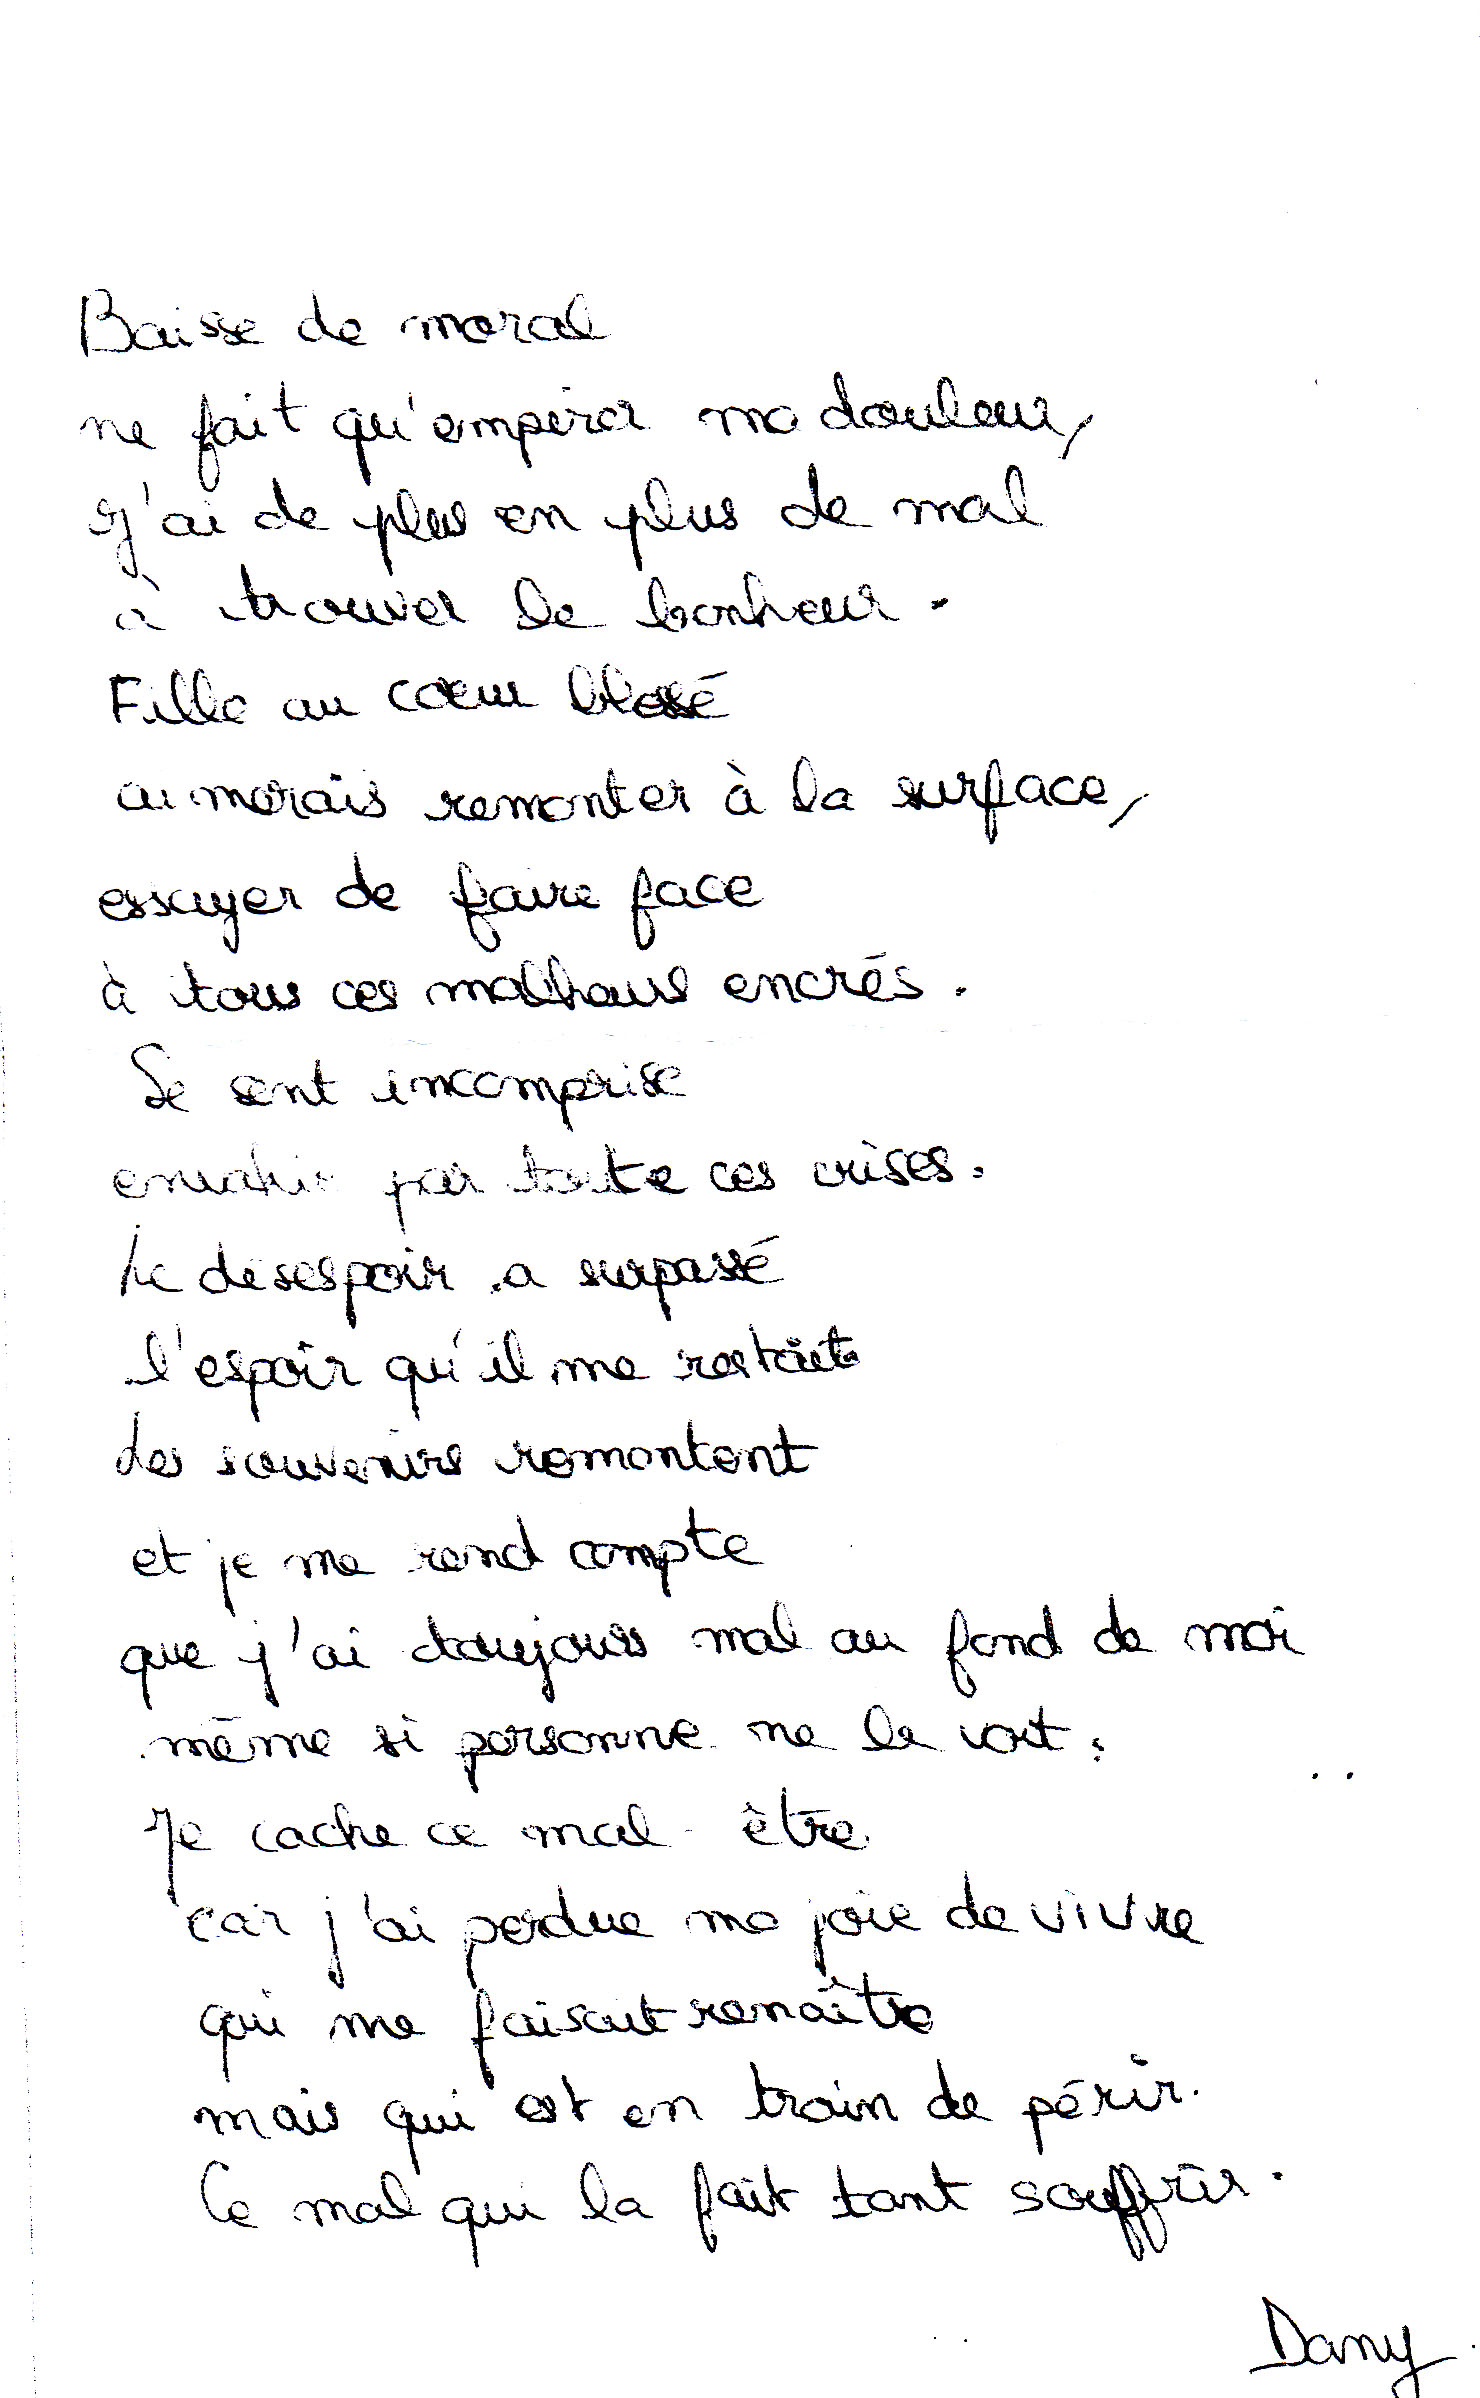 Baisse de moral
ne fait qu'empirer ma douleur,
J'ai de plus en plus de mal
à trouver le bonheur.
Fille au cœur blessé
aimerais remonter à la surface,
essayer de faire face
à tous ces malheurs encrés.
Se sent incomprise
envahie par toute ces crises.
Le désespoir a surpassé
l'espoir qu'il me restait
Les souvenirs remontent
et je me rend compte
que j'ai toujours mal au fond de moi
même si personne ne le voit.
Je cache ce mal-être
car j'ai perdue ma joie de vivre
qui me faisait renaître
mais qui est en train de périr.
Ce mal qui la fait tant souffrir.
Dany